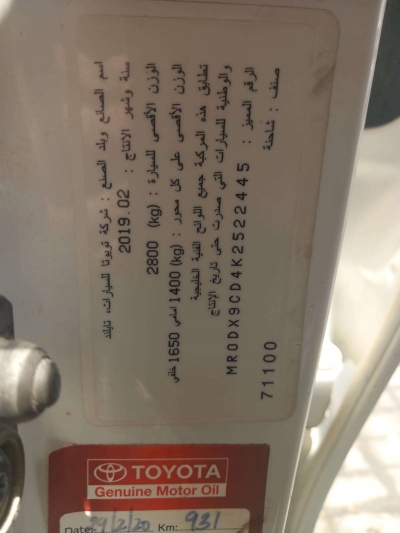 اسم الصانع وبلد الصنع : شركة تويوتا للسيارات، تايلند
سنة وشهر الانتاج : 2019.02
الوزن الأقصى للسيارة : (kg) 2800
الوزن الأقصى على كل محور : (kg) 1400 امامي 1650 خلفي
تطابق هذه المركبة جميع اللوائح الفنية الخليجية
والوطنية للسيارات التي صدرت حتى تاريخ الإنتاج
الرقم المميز : MR0DX9CD4K2522445
صنف : شاحنة 71100
TOYOTA
Genuine Motor Oil
Date: 29/2/20 Km: 931